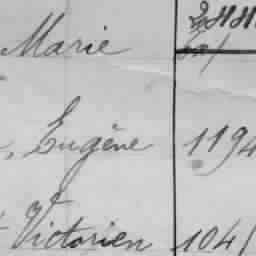 Marie
, Eugène 1194
Victorien 104